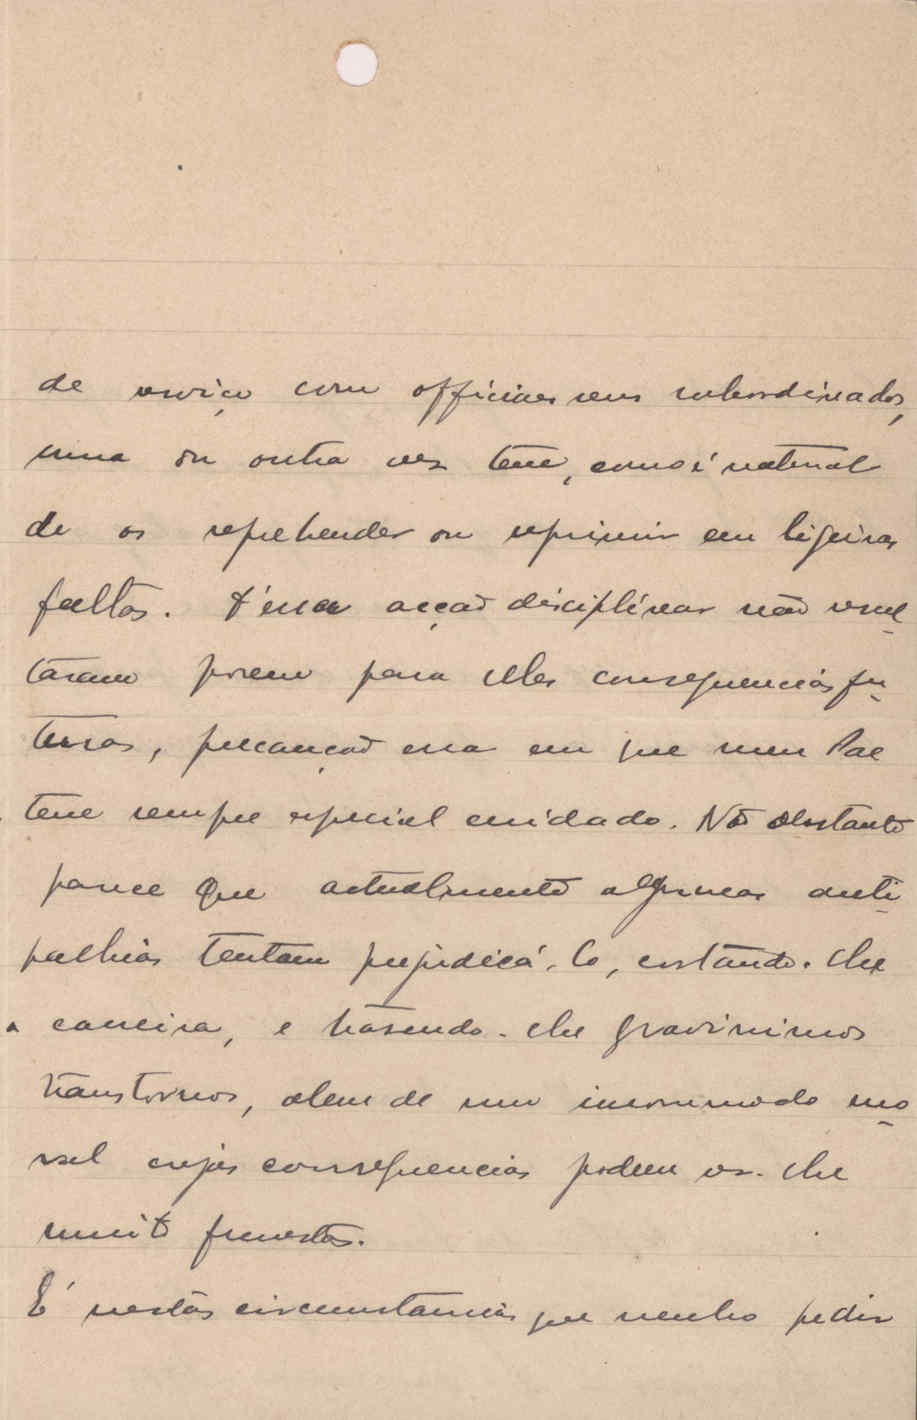 de serviço com officiaes seus subordinados,
uma ou outra vez teve, como é natural
de os reprehender ou reprimir em ligeiras
faltas. D'essa acção disciplinar não resul-
taram porem para elles consequencias fu-
turas, precaução essa em que meu Pae
teve sempre especial cuidado. Não obstante
parece que actualmente algumas anti-
pathias tentam prejudicá-lo, cortando-lhe
a carreira, e trasendo-lhe gravissimos
transtornos, alem de um incommodo mo-
ral cujas consequencias podem ser-lhe
muito funestas.
É nestas circumstancias que venho pedir